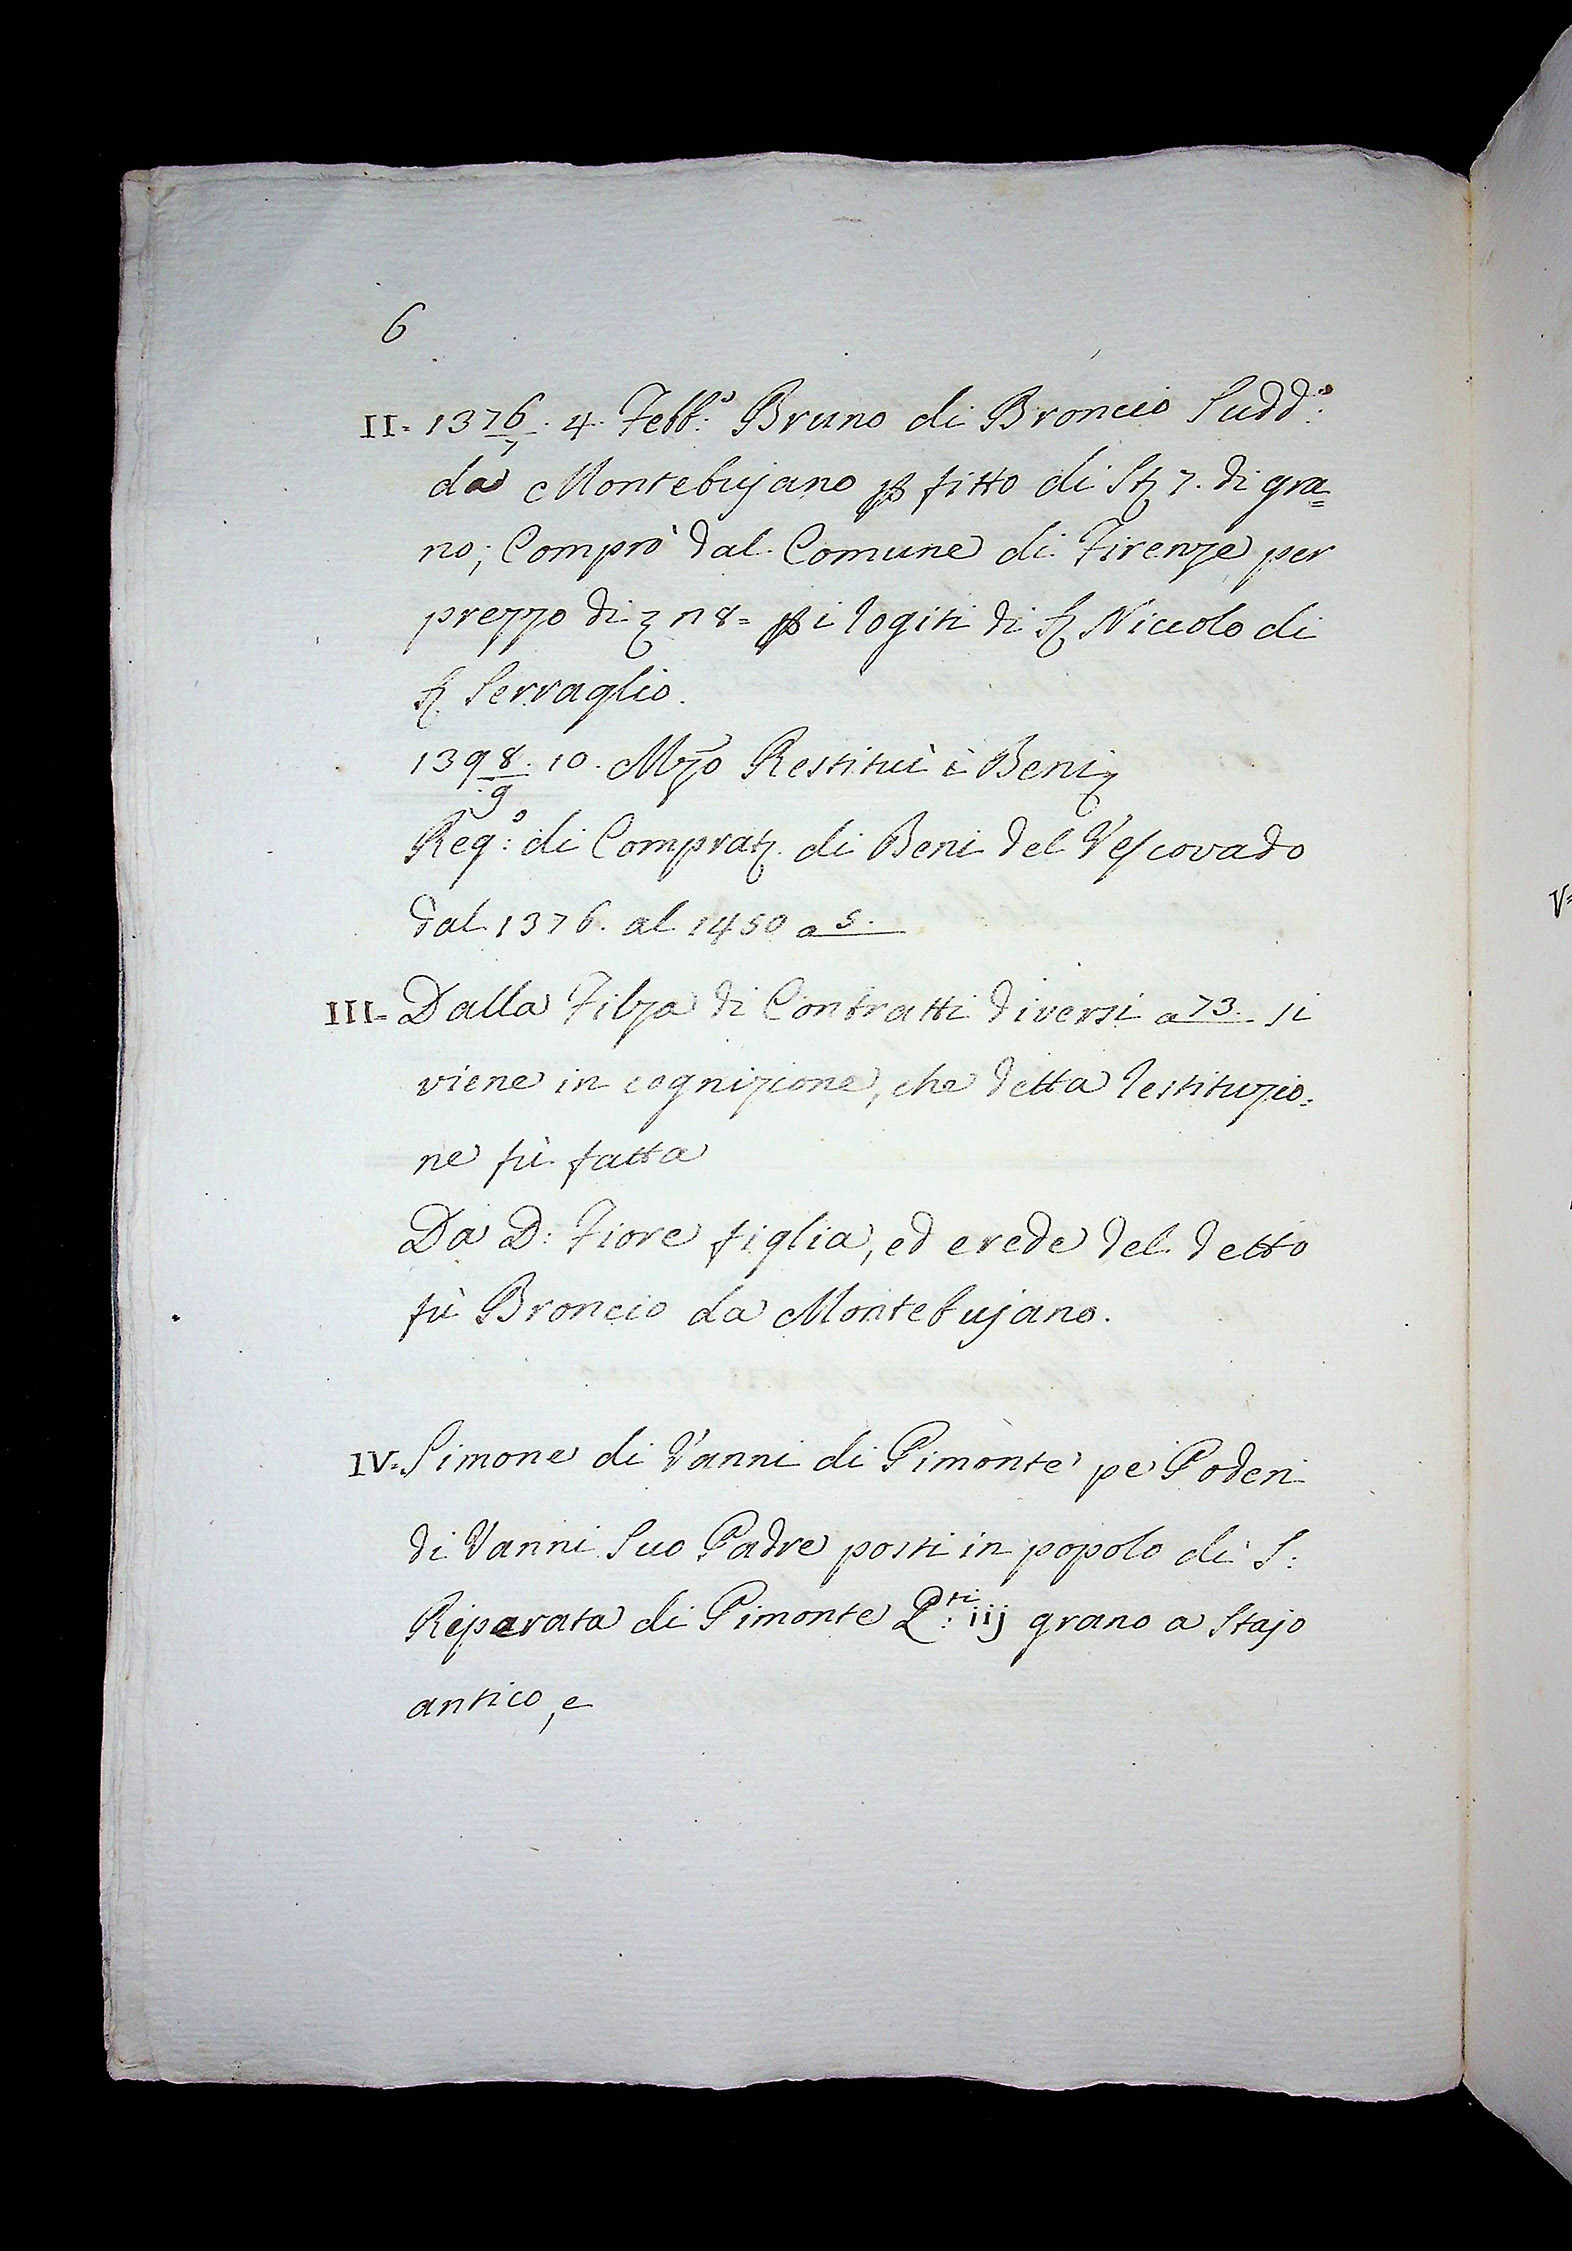 6
II= 1376/7. 4. Febb:o Bruno di Broncio Sudd:o
da Montebujano p fitto di St 7. di gra=
no; Comprò dal Comune di Firenze per
prezzo di n 8= p i rogiti di S Niccolo di
S Serraglio.
1398/9. 10. Mzo Restituì i Beni
Reg:o di Comprat di Beni del Vescovado
dal 1376. al 1450 a 5.
III= Dalla Filza di Contratti diversi a 73. si
viene in cognizione, che detta restituzio=
ne fù fatta
Da D: Fiore figlia, ed erede del detto
fù Broncio da Montebujano.
IV= Simone di Vanni di Pimonte pe Poderi
di Vanni Suo Padre posti in popolo di S:
Reparata di Pimonte Q:ti iij grano a Stajo
antico, e
V=